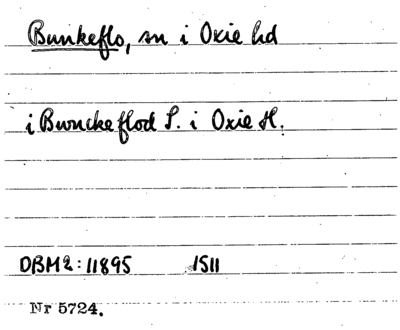 Bunkeflo, sn i Oxie hd
i Bwnckeflod S. i Oxie H.
DBM2:11895 1511
Nr 5724.